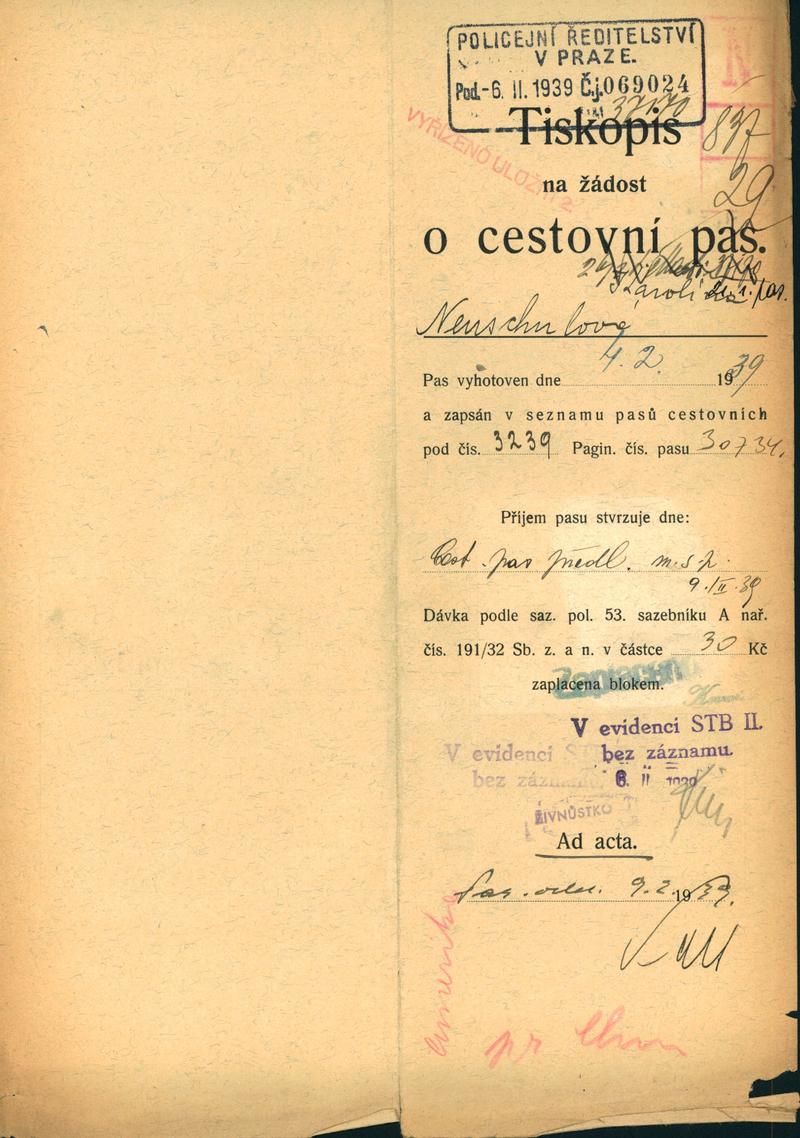 POLICEJNÍ ŘEDITELSTVÍ
V PRAZE.
Pod. -6. II. 1939 Č.j. 069024
37170
837
VYŘÍZENO ULOŽIT
Tiskopis
29
na žádost
o cestovní pas.
Neuschulová
Pas vyhotoven dne 4. 2. 1939
a zapsán v seznamu pasů cestovních
pod čís. 3239 Pagin. čís. pasu 30734.
Příjem pasu stvrzuje dne:
Cest. pas předl. m. s. p.
9./II. 39
Dávka podle saz. pol. 53. sazebníku A nař.
čís. 191/32 Sb. z. a n. v částce 30 Kč
Zaplaceno
zaplacena blokem.
V evidenci STB II.
bez záznamu.
6. II 1939
V evidenci
bez
ŽIVNŮSTKO
Ad acta.
9. 2. 1939.